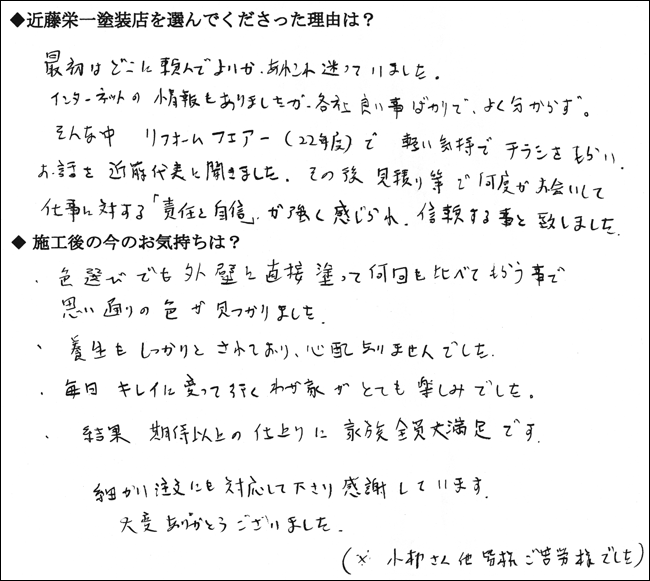 ◆近藤栄一塗装店を選んでくださった理由は？
最初はどこに頼んでよいか、あれこれ迷っていました。
インターネットの情報もありましたが、各社良い事ばかりで、よく分からず。
そんな中 リフォームフェアー(22年度)で 軽い気持で チラシをもらい、
お話を 近藤代表に聞きました。その後 見積り等で何度かお会いして
仕事に対する「責任と自信」が強く感じられ、信頼する事と致しました。
◆ 施工後の今のお気持ちは？
・色選びでも外壁に直接塗って何回も比べてもらう事で
思い通りの色が見つかりました。
・養生もしっかりとされており、心配ありませんでした。
・毎日 キレイに変って行くわが家がとても楽しみでした。
・結果 期待以上の仕上りに 家族全員大満足です。
細かい注文にも対応して下さり感謝しています。
大変ありがとうございました。
(※ 小柳さん他皆様ご苦労様でした)